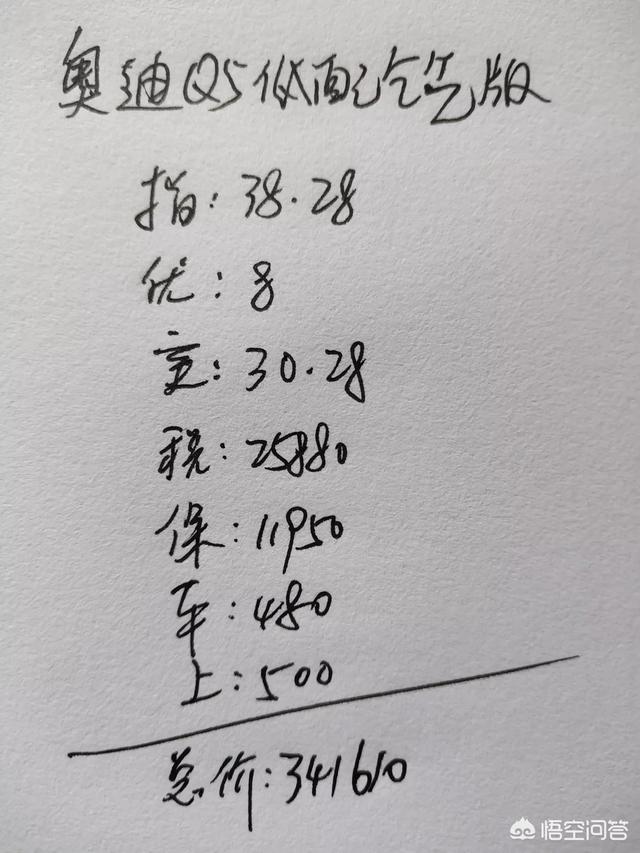 奥迪Q5低配版
指:38.28
优:8
实:30.28
税:25880
保:11950
车:480
上:500
总价:341610
悟空问答